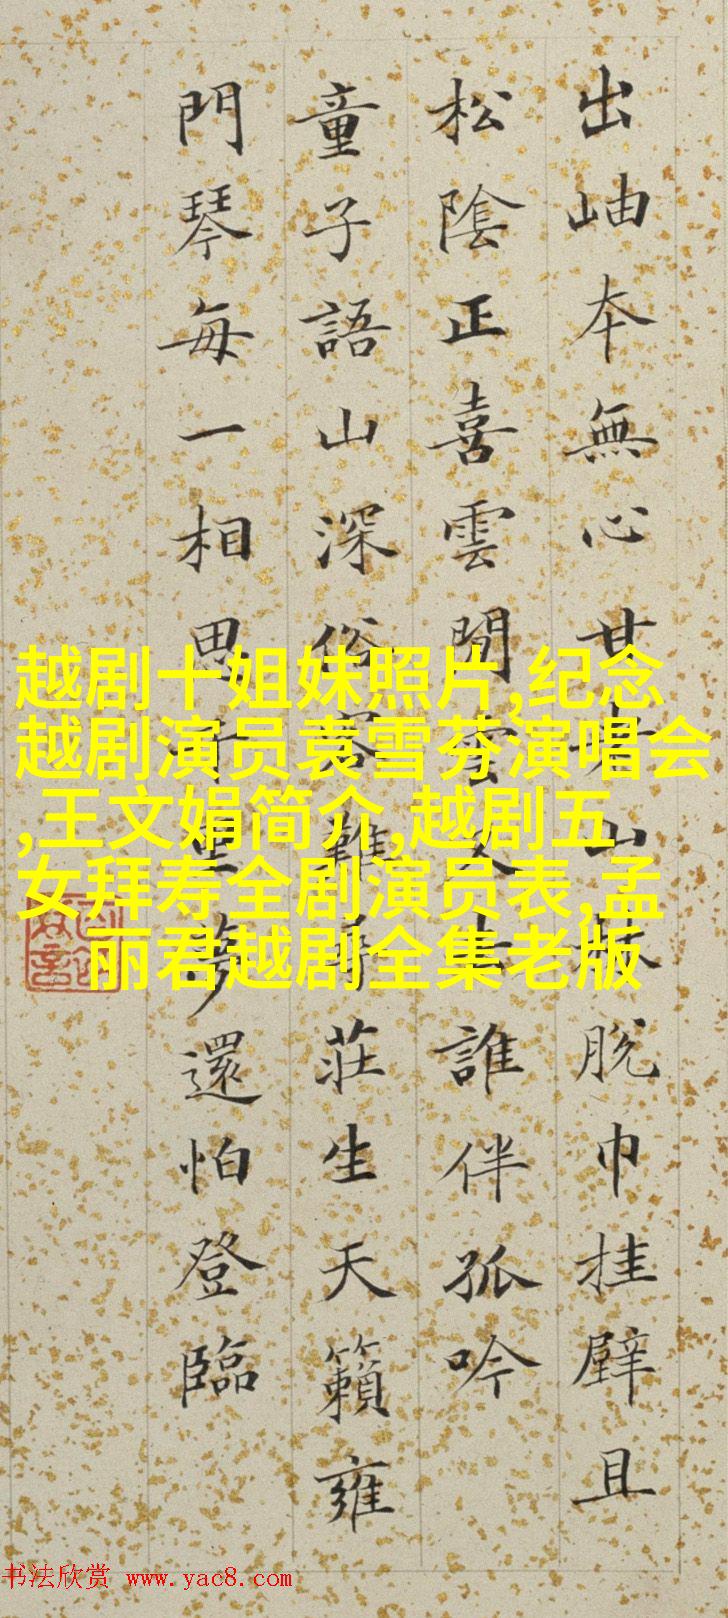 出岫本無心甘老山林脫巾挂壁且
松陰正喜雲閒雲又去誰伴孤吟
童子語山深俗客難尋莊生天籟雍
門琴每一相思千里夢還怕登臨
越剧十姐妹照片,纪念
越剧演员袁雪芬演唱会
,王文娟简介,越剧五
女拜寿全剧演员表,孟
丽君越剧全集老版
书法欣赏 www.yac8.com